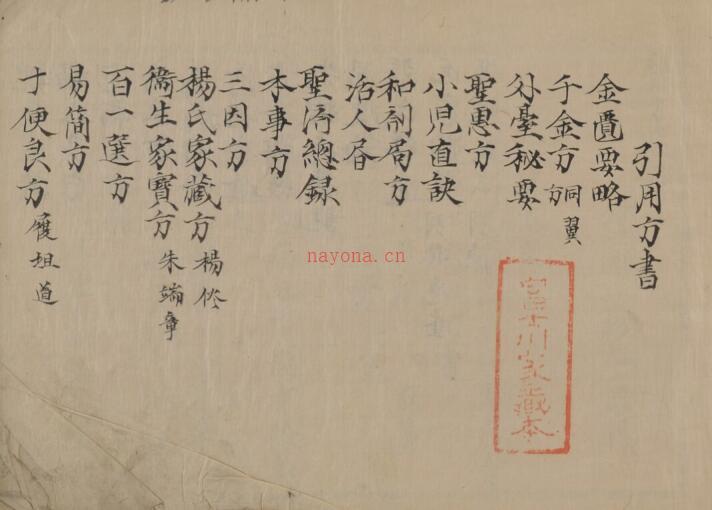 引用方書
金匱要略
千金方 同翼方
外臺秘要
聖惠方
小児直訣
和剤局方
活人書
聖済總録
本事方
三因方
楊氏家藏方 楊倓
衛生家寶方 朱端章
百一選方
易簡方
十便良方
富士川家藏本
nayona.cn